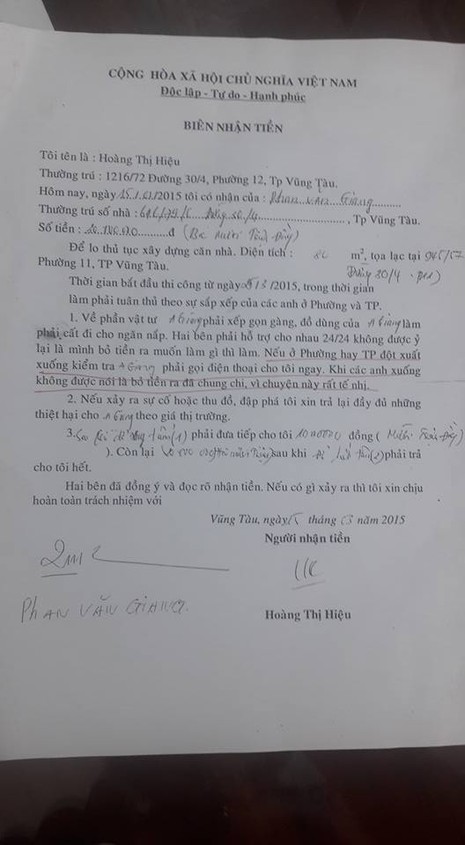 CỘNG HÒA XÃ HỘI CHỦ NGHĨA VIỆT NAM
Độc lập - Tự do - Hạnh phúc
BIÊN NHẬN TIỀN
Tôi tên là : Hoàng Thị Hiệu
Thường trú : 1216/72 Đường 30/4, Phường 12, Tp Vũng Tàu.
Hôm nay, ngày /2015 tôi có nhận của : Phan Văn Giang
Thường trú số nhà : , Tp Vũng Tàu.
Số tiền : đ (Ba mươi Triệu Đồng)
Để lo thủ tục xây dựng căn nhà. Diện tích : m², tọa lạc tại
Phường 11, TP Vũng Tàu. Đường 30/4
Thời gian bắt đầu thi công từ ngày /2015, trong thời gian
làm phải tuân thủ theo sự sắp xếp của các anh ở Phường và TP.
1. Về phần vật tư A Giang phải xếp gọn gàng, đồ dùng của A Giang làm
phải cất đi cho ngăn nắp. Hai bên phải hỗ trợ cho nhau 24/24 không được ỷ
lại là mình bỏ tiền ra muốn làm gì thì làm. Nếu ở Phường hay TP đột xuất
xuống kiểm tra A Giang phải gọi điện thoại cho tôi ngay. Khi các anh xuống
không được nói là bỏ tiền ra đã chung chi, vì chuyện này rất tế nhị.
2. Nếu xảy ra sự cố hoặc thu đồ, đập phá tôi xin trả lại đầy đủ những
thiệt hại cho A Giang theo giá thị trường.
3. phải đưa tiếp cho tôi đồng ( Mười Triệu Đồng
). Còn lại sau khi phải trả
cho tôi hết.
Hai bên đã đồng ý và đọc rõ nhận tiền. Nếu có gì xảy ra thì tôi xin chịu
hoàn toàn trách nhiệm với
Vũng Tàu, ngày 15 tháng 03 năm 2015
Người nhận tiền
PHAN VĂN GIANG
Hoàng Thị Hiệu